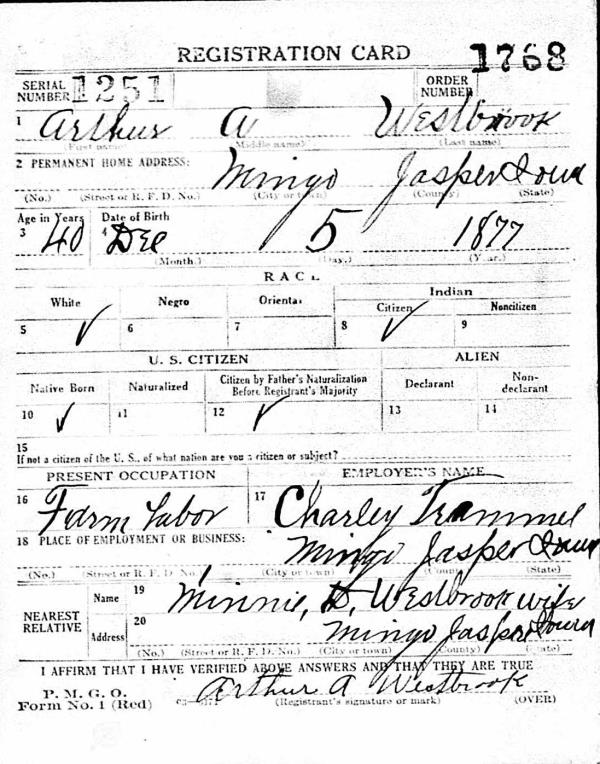 REGISTRATION CARD 1768
SERIAL NUMBER 1251 ORDER NUMBER
1 Arthur A Westbrook
(First name) (Middle name) (Last name)
2 PERMANENT HOME ADDRESS: Mingo Jasper Iowa
(No.) (Street or R. F. D. No.) (City or town) (County) (State)
Age in Years Date of Birth
3 40 4 Dec 5 1877
(Month.) (Day.) (Year.)
RACE
White Negro Oriental Indian
Citizen Noncitizen
5 ✓ 6 7 8 ✓ 9
U. S. CITIZEN ALIEN
Native Born Naturalized Citizen by Father's Naturalization Before Registrant's Majority Declarant Non-declarant
10 ✓ 11 12 ✓ 13 14
15
If not a citizen of the U. S., of what nation are you a citizen or subject?
PRESENT OCCUPATION EMPLOYER'S NAME
16 Farm Labor 17 Charley Trammel
18 PLACE OF EMPLOYMENT OR BUSINESS: Mingo Jasper Iowa
(No.) (Street or R. F. D. No.) (City or town) (County) (State)
NEAREST RELATIVE Name 19 Minnie, D, Westbrook wife
Address 20 Mingo Jasper Iowa
(No.) (Street or R. F. D. No.) (City or town) (County) (State)
I AFFIRM THAT I HAVE VERIFIED ABOVE ANSWERS AND THAT THEY ARE TRUE
P. M. G. O.
Form No. 1 (Red) Arthur A Westbrook
(Registrant's signature or mark) (OVER)